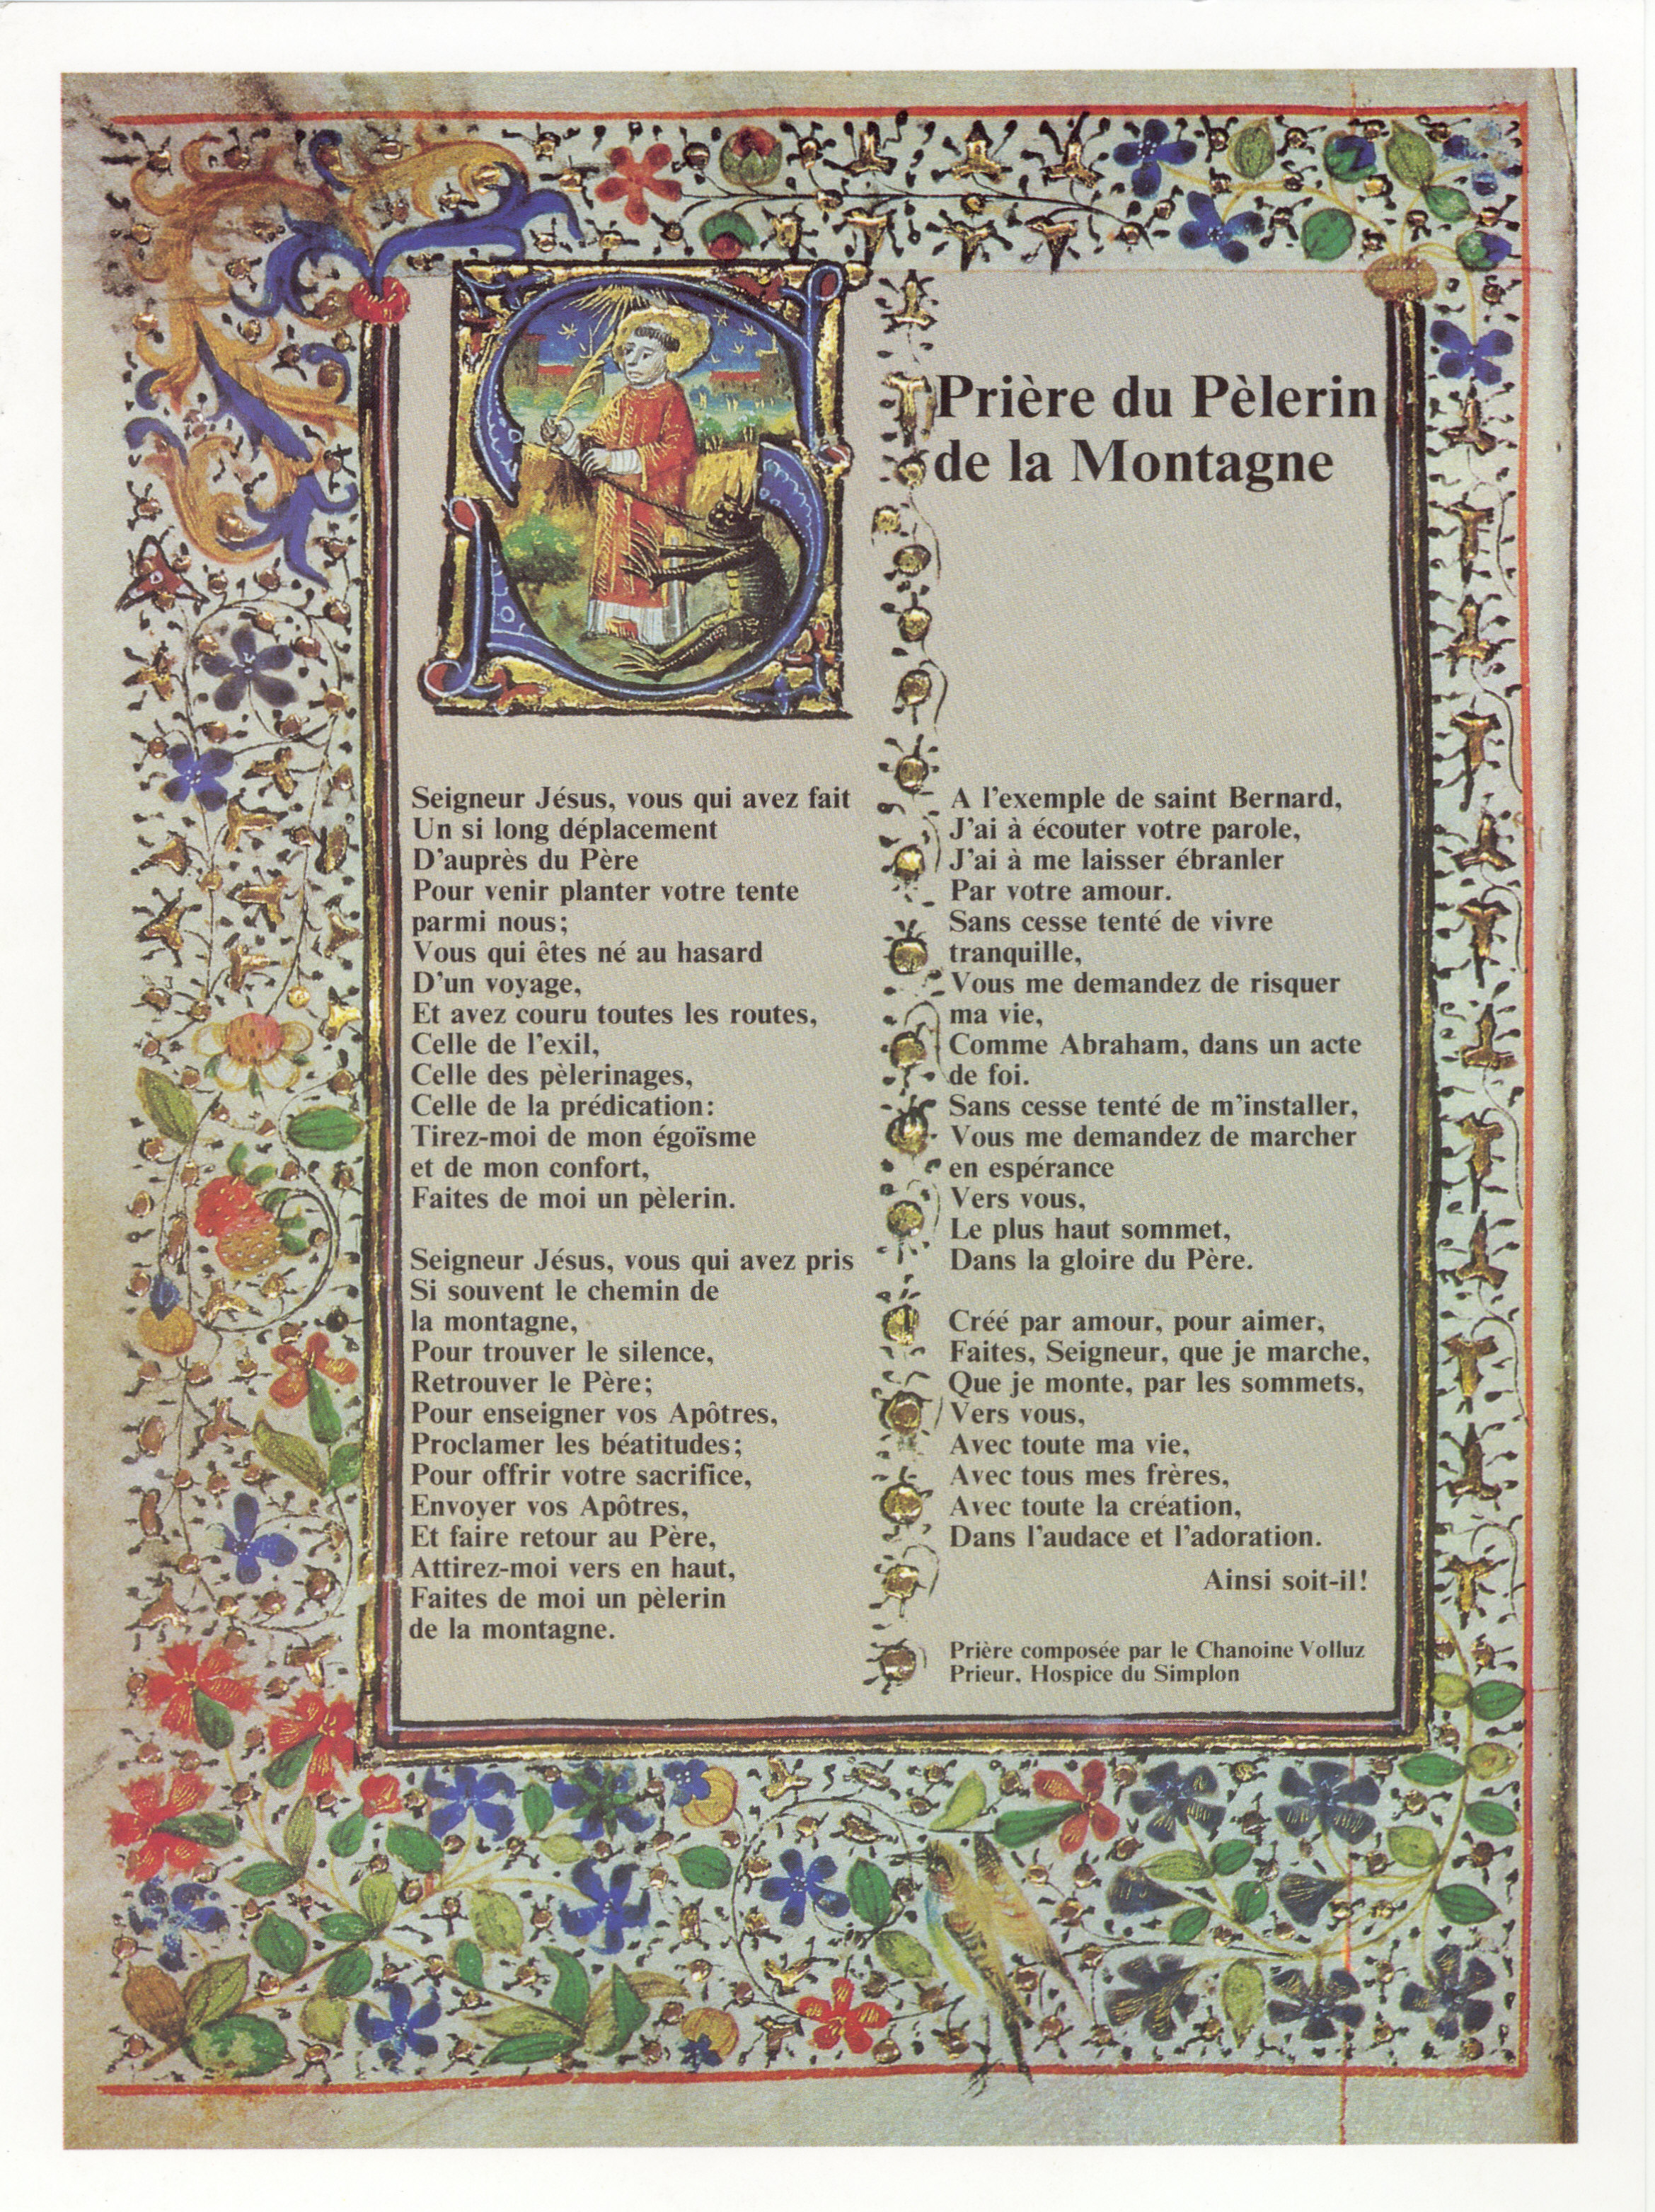 Prière du Pèlerin
de la Montagne
Seigneur Jésus, vous qui avez fait
Un si long déplacement
D'auprès du Père
Pour venir planter votre tente
parmi nous;
Vous qui êtes né au hasard
D'un voyage,
Et avez couru toutes les routes,
Celle de l'exil,
Celle des pèlerinages,
Celle de la prédication:
Tirez-moi de mon égoïsme
et de mon confort,
Faites de moi un pèlerin.
Seigneur Jésus, vous qui avez pris
Si souvent le chemin de
la montagne,
Pour trouver le silence,
Retrouver le Père;
Pour enseigner vos Apôtres,
Proclamer les béatitudes;
Pour offrir votre sacrifice,
Envoyer vos Apôtres,
Et faire retour au Père,
Attirez-moi vers en haut,
Faites de moi un pèlerin
de la montagne.
A l'exemple de saint Bernard,
J'ai à écouter votre parole,
J'ai à me laisser ébranler
Par votre amour.
Sans cesse tenté de vivre
tranquille,
Vous me demandez de risquer
ma vie,
Comme Abraham, dans un acte
de foi.
Sans cesse tenté de m'installer,
Vous me demandez de marcher
en espérance
Vers vous,
Le plus haut sommet,
Dans la gloire du Père.
Créé par amour, pour aimer,
Faites, Seigneur, que je marche,
Que je monte, par les sommets,
Vers vous,
Avec toute ma vie,
Avec tous mes frères,
Avec toute la création,
Dans l'audace et l'adoration.
Ainsi soit-il!
Prière composée par le Chanoine Volluz
Prieur, Hospice du Simplon